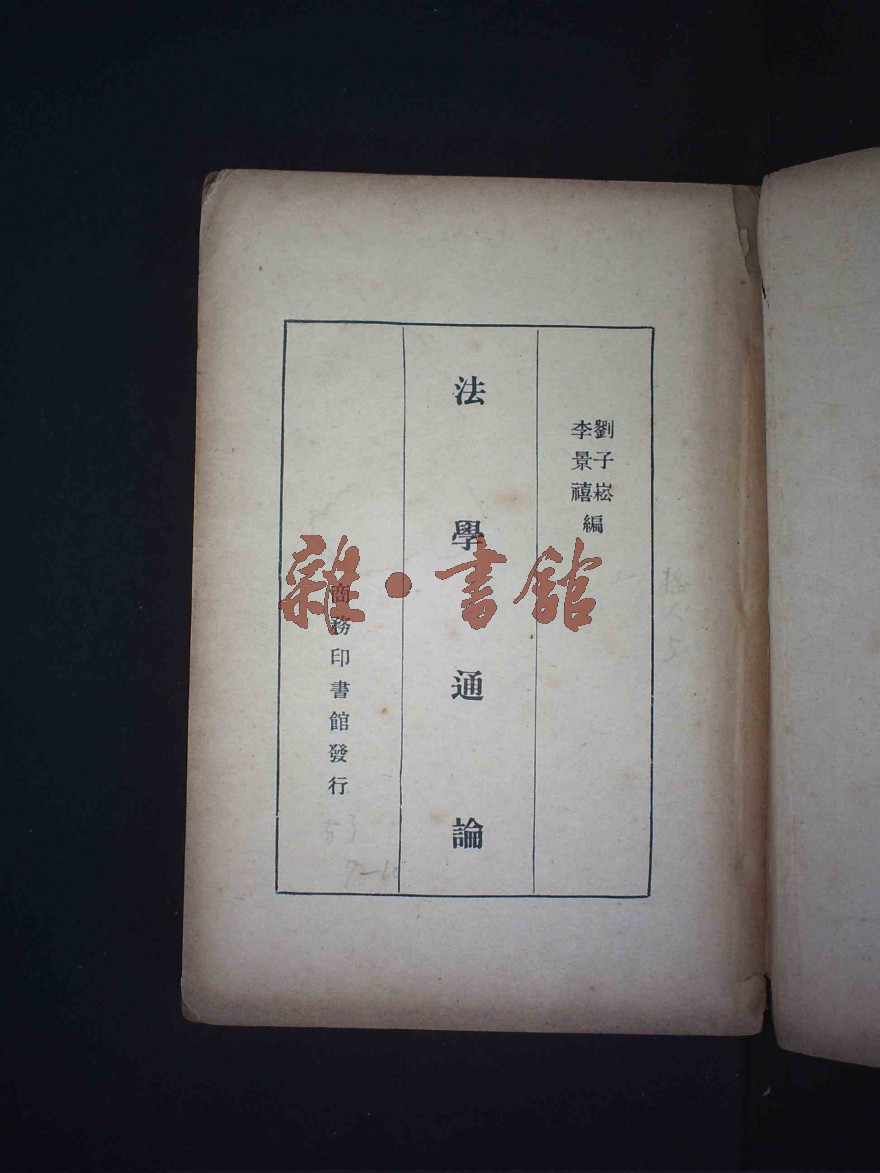 劉子崧
李景禧編
法學通論
商務印書館發行
雜·書館
53